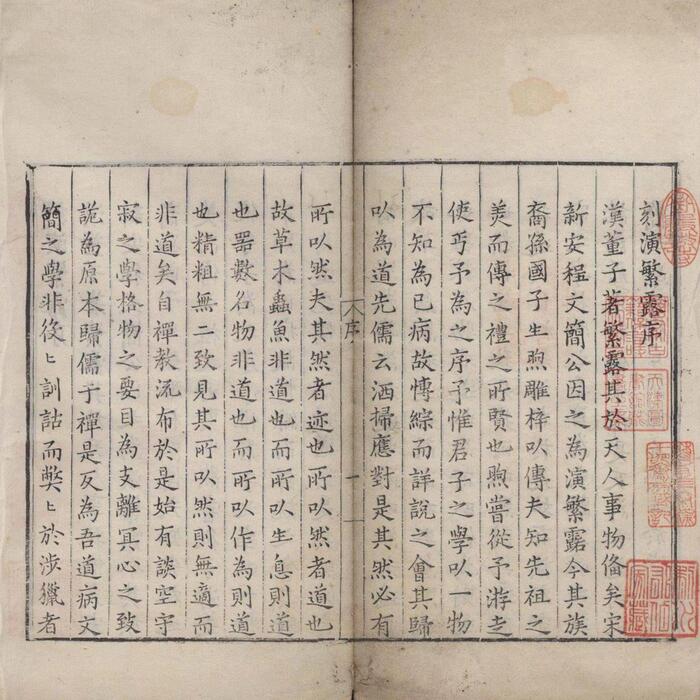 刻演繁露序
漢董子著繁露其於天人事物備矣宋
新安程文簡公因之為演繁露今其族
裔孫國子生煦雕梓以傳夫知先祖之
羙而傳之禮之所賢也煦嘗從予游走
使丐予為之序予惟君子之學以一物
不知為已病故慱綜而詳說之會其歸
以為道先儒云洒掃應對是其然必有
序
一
所以然夫其然者迹也所以然者道也
故草木蟲魚非道也而所以生息則道
也噐數名物非道也而所以作為則道
也精粗無二致見其所以然則無適而
非道矣自禪教流布於是始有談空守
寂之學格物之要目為支離冥心之致
詭為原本歸儒于禪是反為吾道病文
簡之學非役ヒ訓詁而獘ヒ於涉獵者